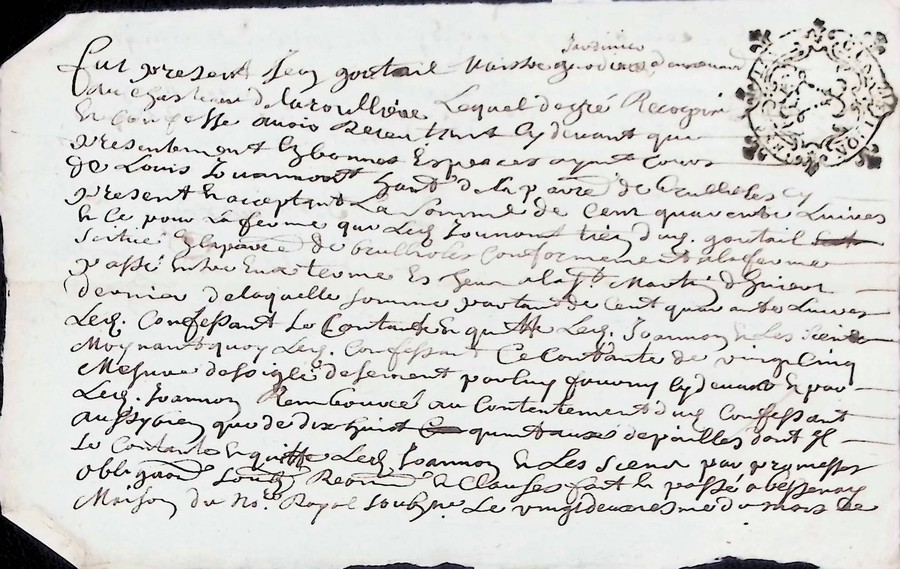 Jardinier
Fut present Jean goutail Maistre demeurant
au chasteau de laroulliere Lequel de gré Recognoi
Et Confesse avoir Receu tant cy devant que
presentement En bonnes Espeaces ayant cours
de Louis Joannon habt de la parre de brullioles cy
present Et acceptant La somme de Cent quarente Livres
Et Ce pour La ferme que Led. Joannon tien dud. goutail
scitue En la parre de brullioles Conformement a la ferme
passé Entre Eux terme Escheu a la st Martin d'hiver
dernier de laquelle somme partant de Cent quarante Livres
Led. Confessant se Contante Et quitte Led. Joannon Et Les siens
Moyenant quoy Led. Confessant Ce Contante de vingt Cinq
Mesure de soigle de sement par luy fourny cy devant Et par
Led. Joannon Remboucé au Contentement dud. Confessant
aussy bien que de dix huict quintaux de pailles dont Il
se Contante Et quitte Led. Joannon Et Les siens par promesses
obligaon soubz Reaon Et Clauses fait Et passé a bessenay
Maison du No.re Royal soubzne Le vingt deuxiesme du mois de